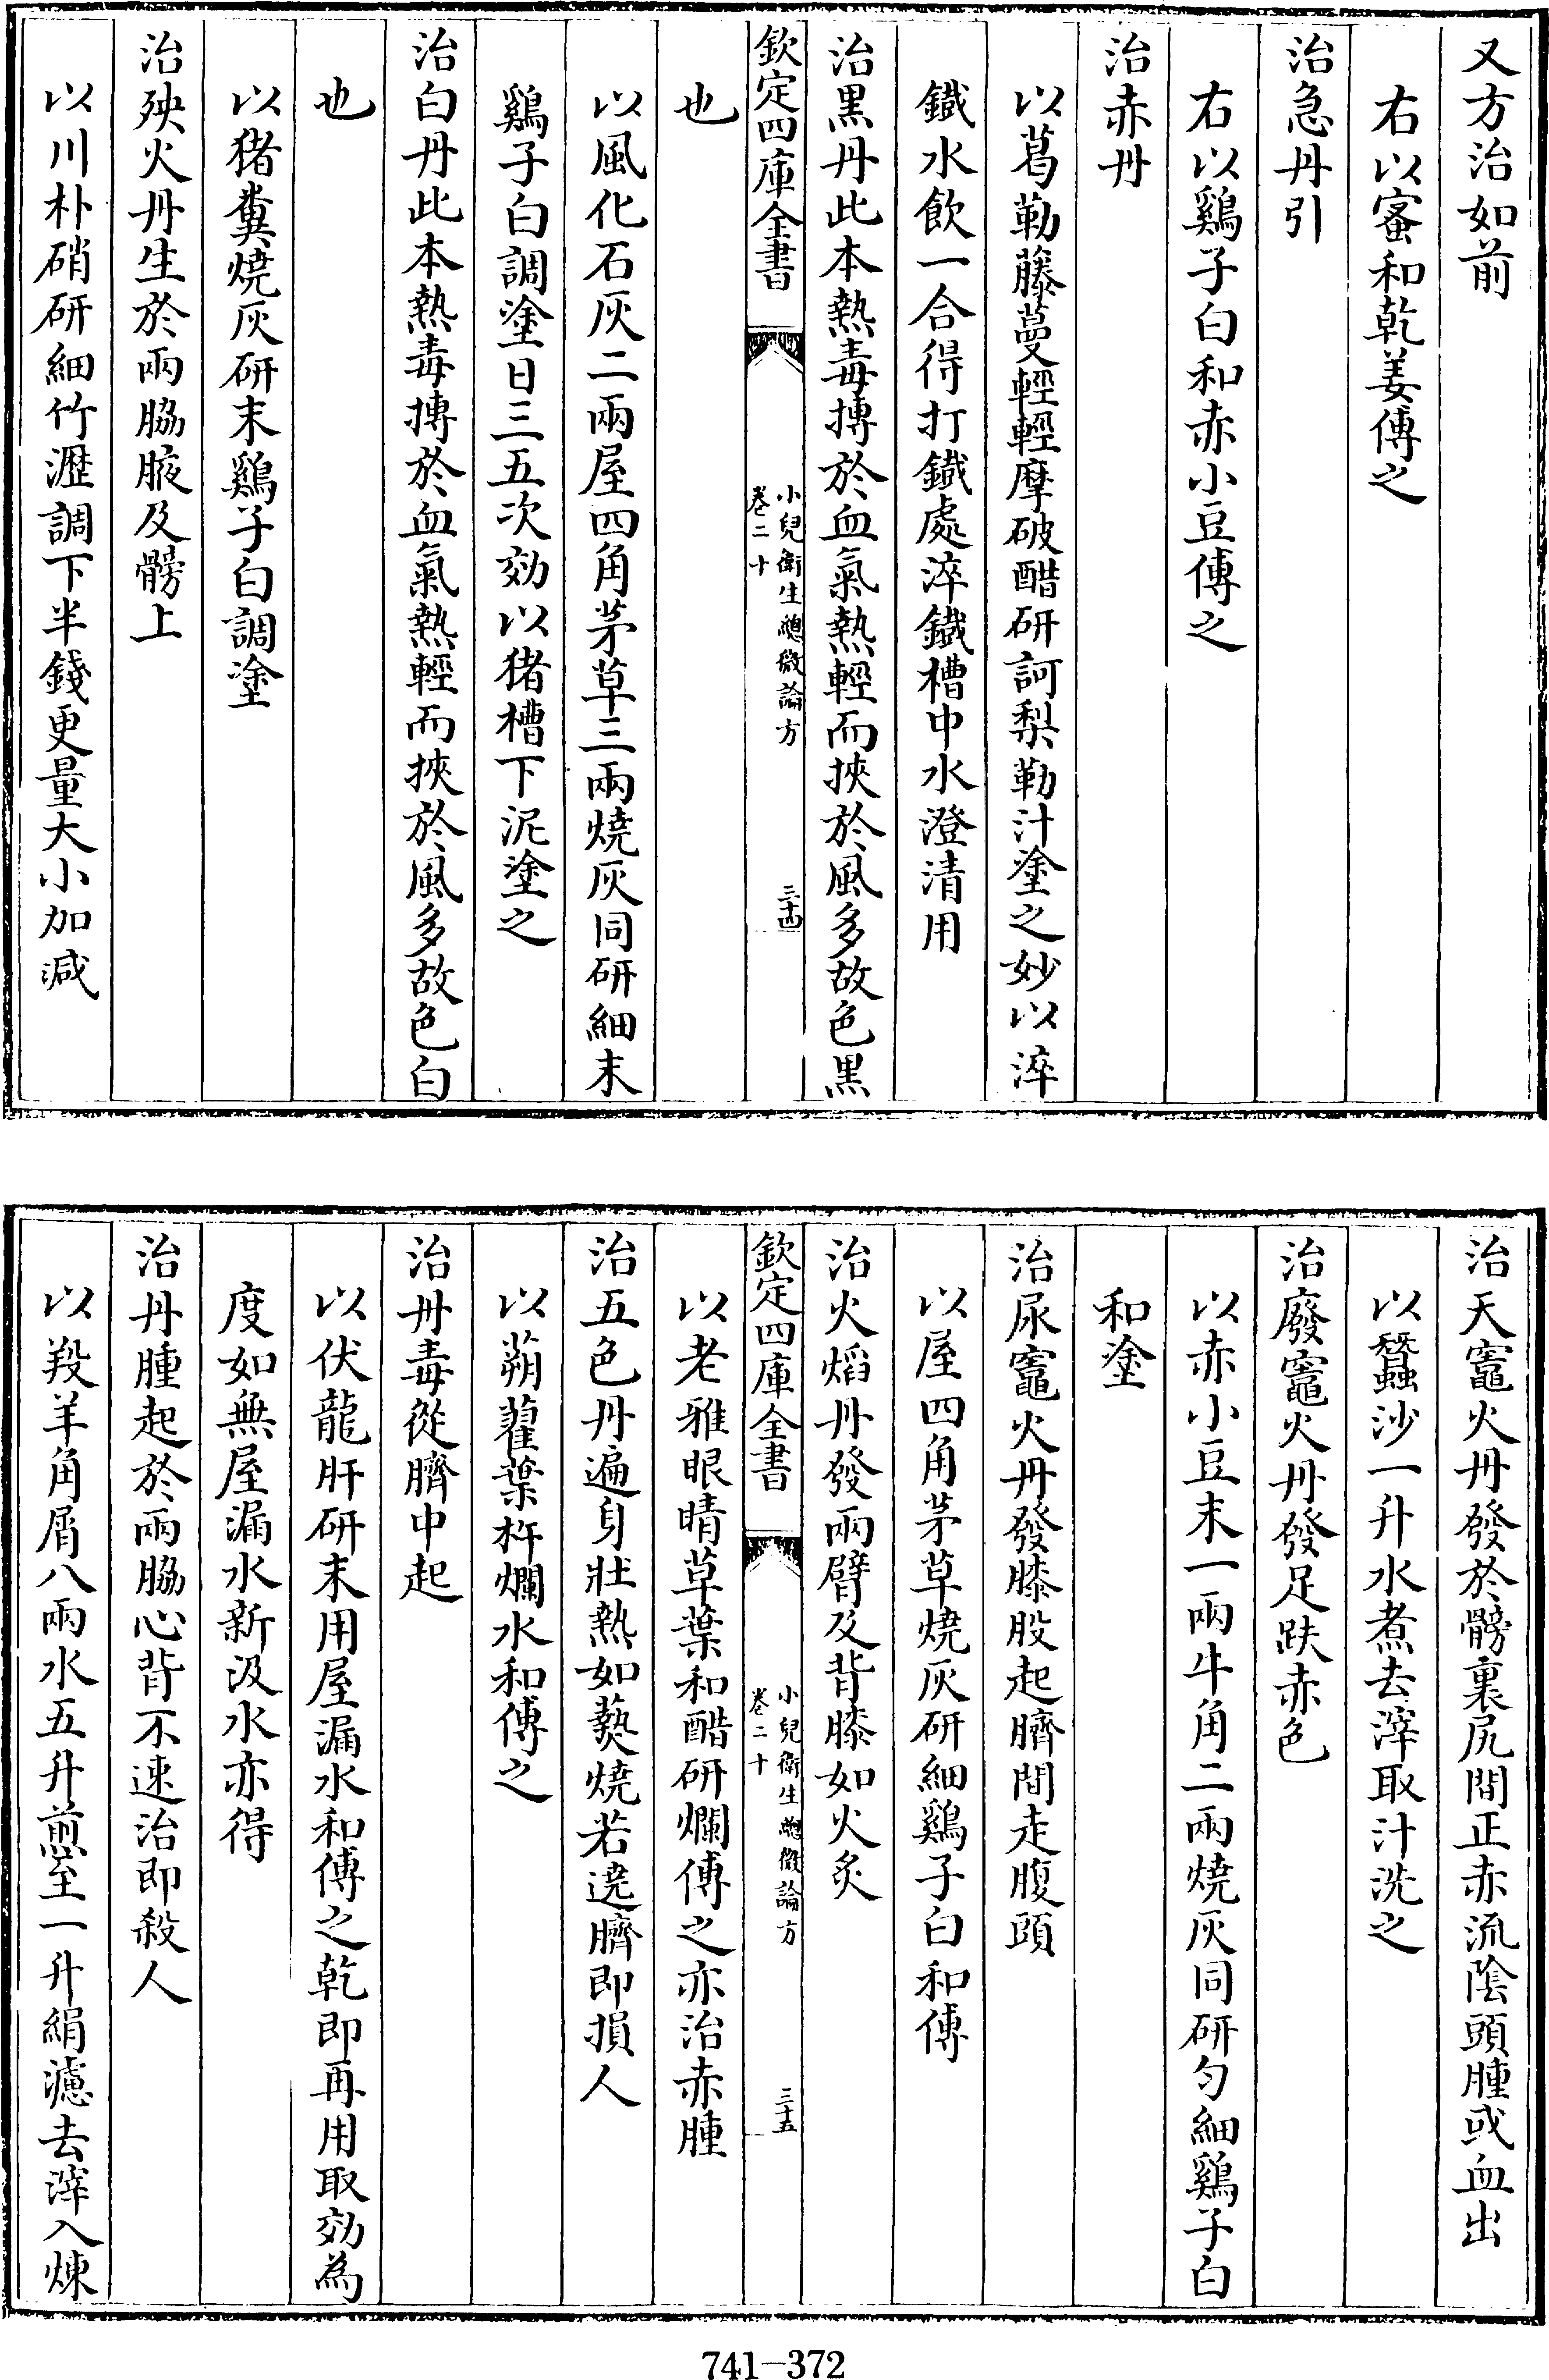 又方治如前
右以蜜和乾姜傅之
治急丹引
右以鷄子白和赤小豆傅之
治赤丹
以葛勒藤蔓輕輕摩破醋研訶梨勒汁塗之妙以淬
鐵水飲一合得打鐵處淬鐵槽中水澄清用
治黒丹此本熱毒搏於血氣熱輕而挾於風多故色黒
欽定四庫全書
小兒衛生總微論方
卷二十
三十四
也
以風化石灰二兩屋四角茅草三兩燒灰同研細末
鷄子白調塗日三五次効以猪槽下泥塗之
治白丹此本熱毒搏於血氣熱輕而挾於風多故色白
也
以猪糞燒灰研末鷄子白調塗
治殃火丹生於兩脇腋及髈上
以川朴硝研細竹瀝調下半錢更量大小加減
治天竈火丹發於髈裏尻間正赤流陰頭腫或血出
以蠶沙一升水煮去滓取汁洗之
治廢竈火丹發足趺赤色
以赤小豆末一兩牛角二兩燒灰同研勻細鷄子白
和塗
治尿竈火丹發膝股起臍間走腹頭
以屋四角茅草燒灰研細鷄子白和傅
治火熖丹發兩臂及背膝如火炙
欽定四庫全書
小兒衛生總微論方
卷二十
三十五
以老雅眼睛草葉和醋研爛傅之亦治赤腫
治五色丹遍身壯熱如爇燒若遶臍即損人
以蒴藋葉杵爛水和傅之
治丹毒從臍中起
以伏龍肝研末用屋漏水和傅之乾即再用取効為
度如無屋漏水新汲水亦得
治丹腫起於兩脇心背不速治即殺人
以羖羊角屑八兩水五升煎至一升絹濾去滓入煉
741-372